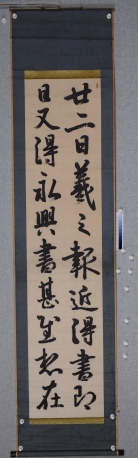 廿二日羲之報近得書即
日又得永興書甚慰想在